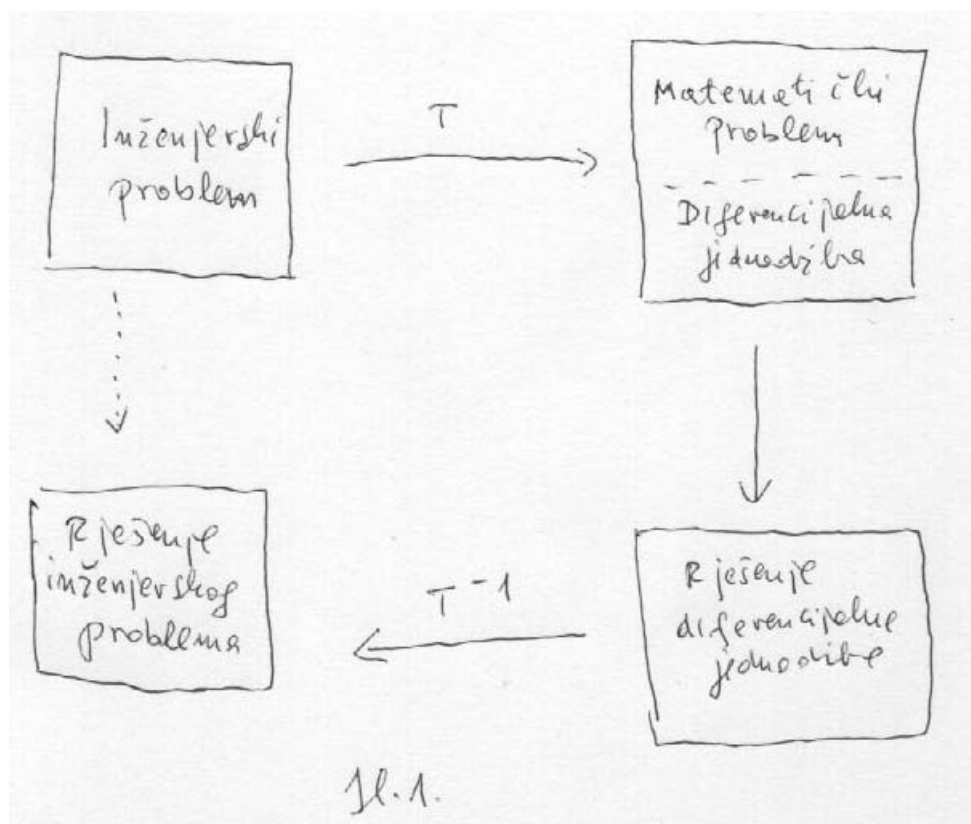 Inženjerski
problem
T
Matematički
problem
Diferencijalna
jednadžba
Rješenje
inženjerskog
problema
T⁻¹
Rješenje
diferencijalne
jednadžbe
Sl.1.